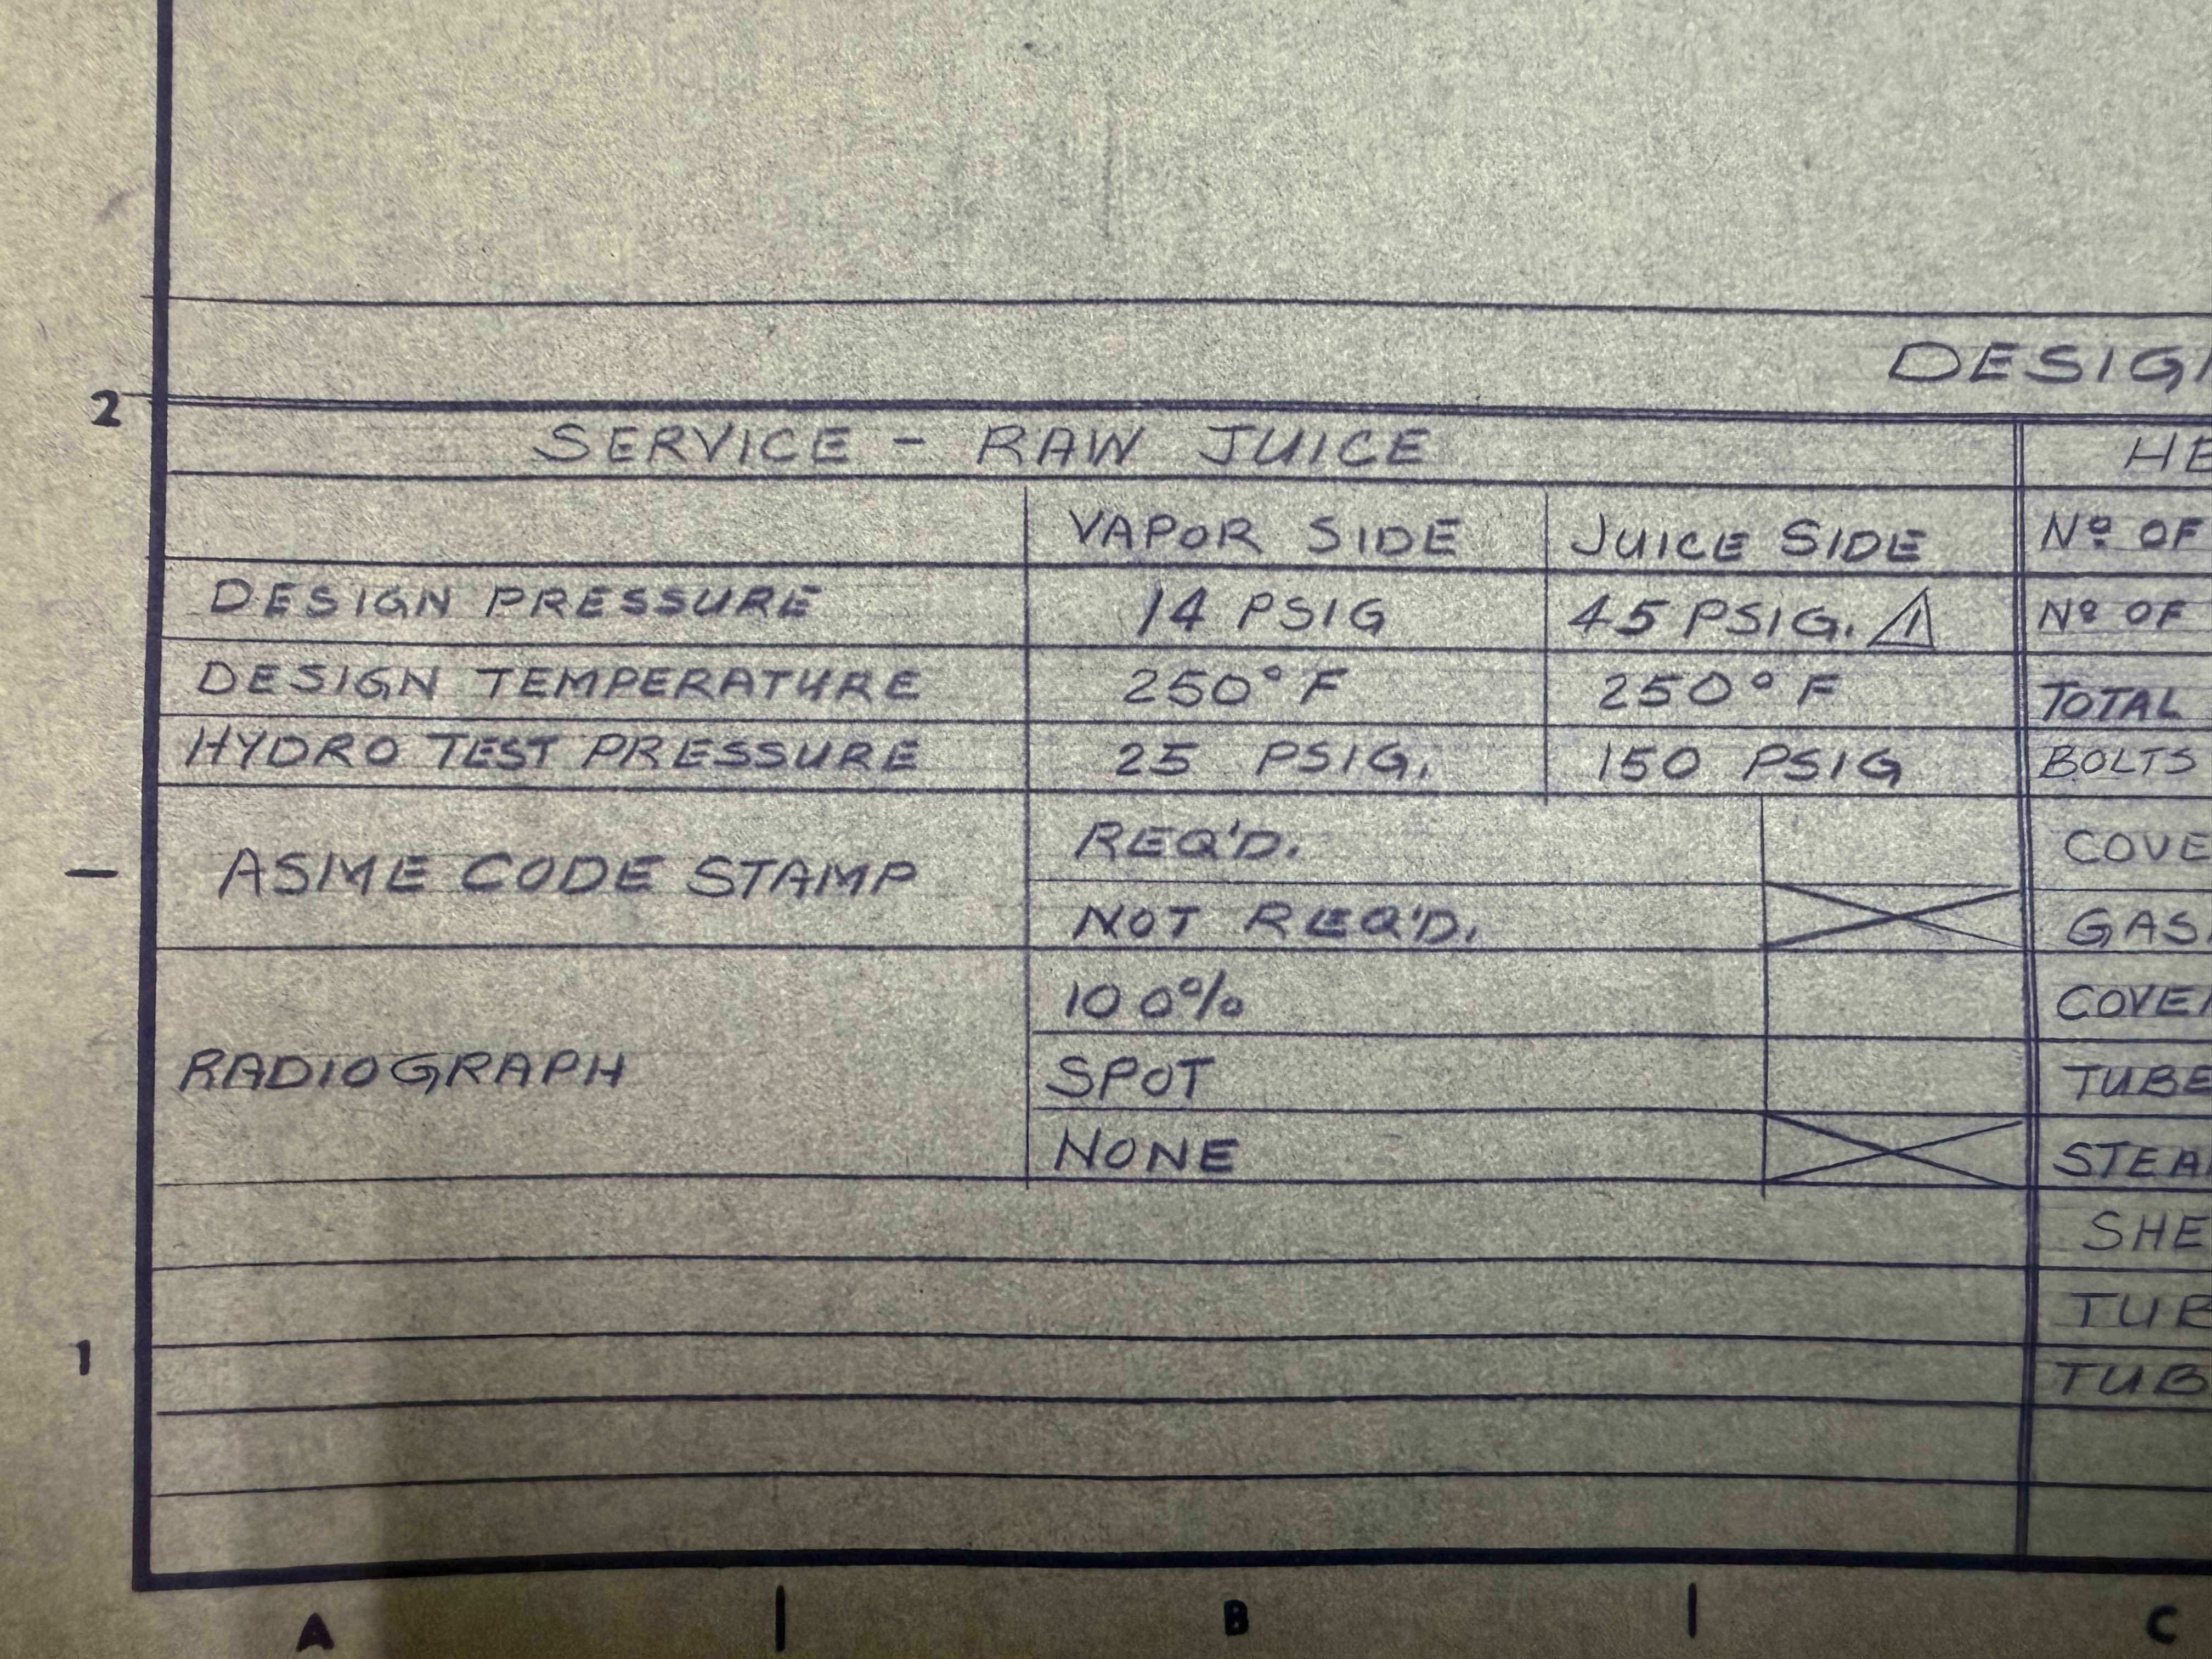 DESIGN
2
SERVICE - RAW JUICE
VAPOR SIDE JUICE SIDE Nº OF
DESIGN PRESSURE 14 PSIG 45 PSIG. 1 Nº OF
DESIGN TEMPERATURE 250° F 250° F TOTAL
HYDRO TEST PRESSURE 25 PSIG. 150 PSIG BOLTS
ASME CODE STAMP
REQ'D.
NOT REQ'D.
RADIOGRAPH
100%
SPOT
NONE
COVE
GAS
COVER
TUBE
STEA
SHE
TUB
TUB
1
A B C